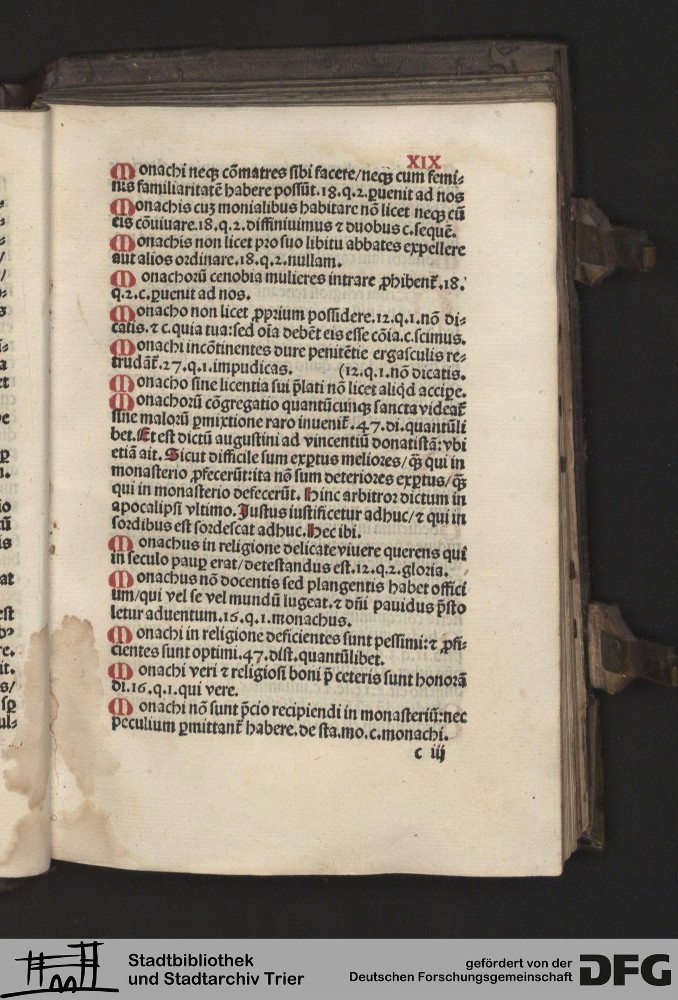 XIX
Monachi neqȝ cōmatres sibi facere/neqȝ cum femi-
nis familiaritatē habere possūt.18.q.2.ꝑuenit ad nos
Monachis cuȝ monialibus habitare nō licet neqȝ cū
eis cōuiuare.18.q.2.diffiniuimus ⁊ duobus c.sequē.
Monachis non licet pro suo libitu abbates expellere
aut alios ordinare.18.q.2.nullam.
Monachorū cenobia mulieres intrare ꝓhibent̄.18.
q.2.c.ꝑuenit ad nos.
Monacho non licet ꝓprium possidere.12.q.1.nō di-
catis.⁊ c.quia tua:sed oīa debēt eis esse cōia.c.scimus.
Monachi incōtinentes dure penitētie ergasculis re-
trudāt̄.27.q.1.impudicas. (12.q.1.nō dicatis.
Monacho sine licentia sui p̄lati nō licet aliqd accipe.
Monachorū cōgregatio quantūcunqȝ sancta videat̄
sine malorū ꝑmixtione raro invenit̄.47.di.quantūli
bet.Et est dictū augustini ad vincentiū donatistā:vbi
etiā ait.Sicut difficile sum exꝑtus meliores/q̄ȝ qui in
monasterio ꝓfecerūt:ita nō sum deteriores exꝑtus/q̄ȝ
qui in monasterio defecerūt.Hinc arbitror dictum in
apocalipsi vltimo.Justus iustificetur adhuc/⁊ qui in
sordibus est sordescat adhuc.Hec ibi.
Monachus in religione delicate viuere querens qui
in seculo pauꝑ erat/detestandus est.12.q.2.gloria.
Monachus nō docentis sed plangentis habet offici
um/qui vel se vel mundū lugeat.⁊ dn̄i pauidus p̄sto
letur aduentum.16.q.1.monachus.
Monachi in religione deficientes sunt pessimi:⁊ ꝓfi-
cientes sunt optimi.47.dist.quantūlibet.
Monachi veri ⁊ religiosi boni p̄ ceteris sunt honorā
di.16.q.1.qui vere.
Monachi nō sunt p̄cio recipiendi in monasteriū:nec
peculium ꝑmittant̄ habere.de sta.mo.c.monachi.
c iij
Stadtbibliothek
und Stadtarchiv Trier
gefördert von der
Deutschen Forschungsgemeinschaft
DFG